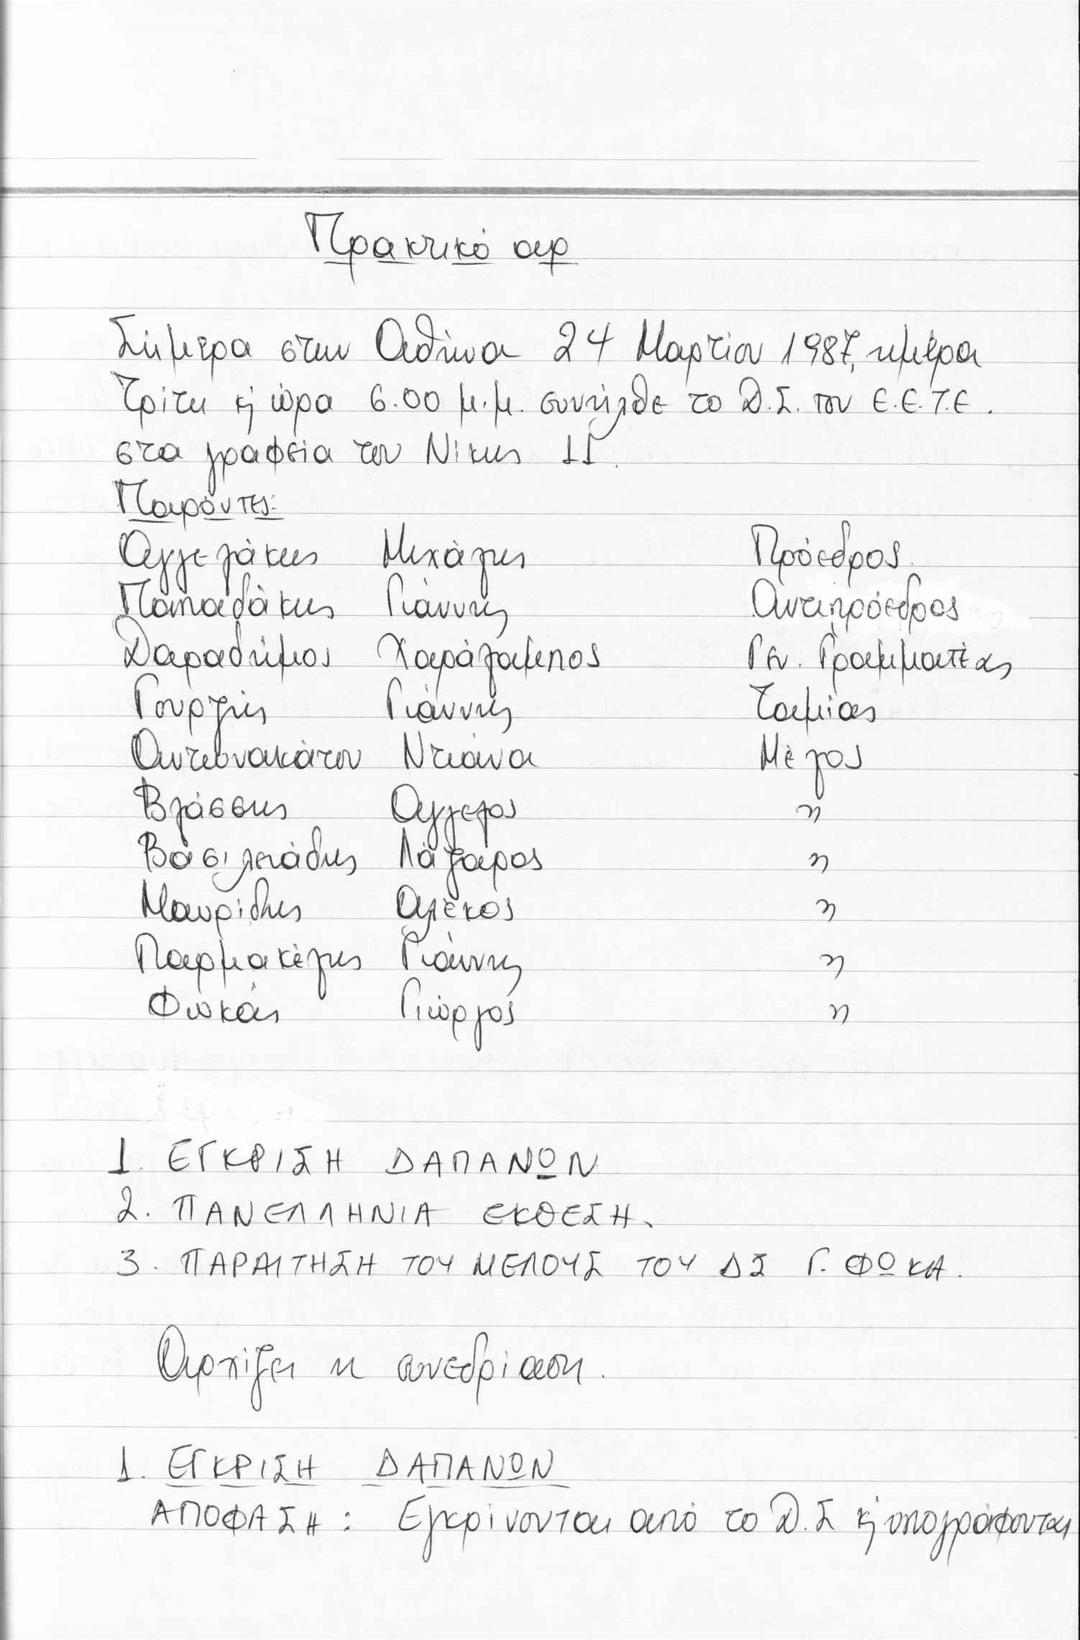 Πρακτικό αρ
Σήμερα στην Αθήνα 24 Μαρτίου 1987, ημέρα
Τρίτη κ ώρα 6.00 μ.μ. συνήλθε το Δ.Σ. του Ε.Ε.Τ.Ε.
στα γραφεία του Νίκης 11.
Παρόντες:
Αγγελάκης Μιχάλης Πρόεδρος.
Παπαδάκης Γιάννης Αντιπρόεδρος
Δαραδήμος Χαράλαμπος Γεν. Γραμματέας
Γουρζής Γιάννης Ταμίας
Αντωνακάτου Ντιάνα Μέλος
Βλάσσης Άγγελος "
Βασιλειάδης Λάζαρος "
Μαυρίδης Αλέκος "
Παρμακέλης Γιάννης "
Φωκάς Γιώργος "
1. ΕΓΚΡΙΣΗ ΔΑΠΑΝΩΝ
2. ΠΑΝΕΛΛΗΝΙΑ ΕΚΘΕΣΗ.
3. ΠΑΡΑΙΤΗΣΗ ΤΟΥ ΜΕΛΟΥΣ ΤΟΥ ΔΣ Γ. ΦΩΚΑ.
Αρχίζει η συνεδρίαση.
1. ΕΓΚΡΙΣΗ ΔΑΠΑΝΩΝ
ΑΠΟΦΑΣΗ: Εγκρίνονται από το Δ.Σ κ υπογράφονται